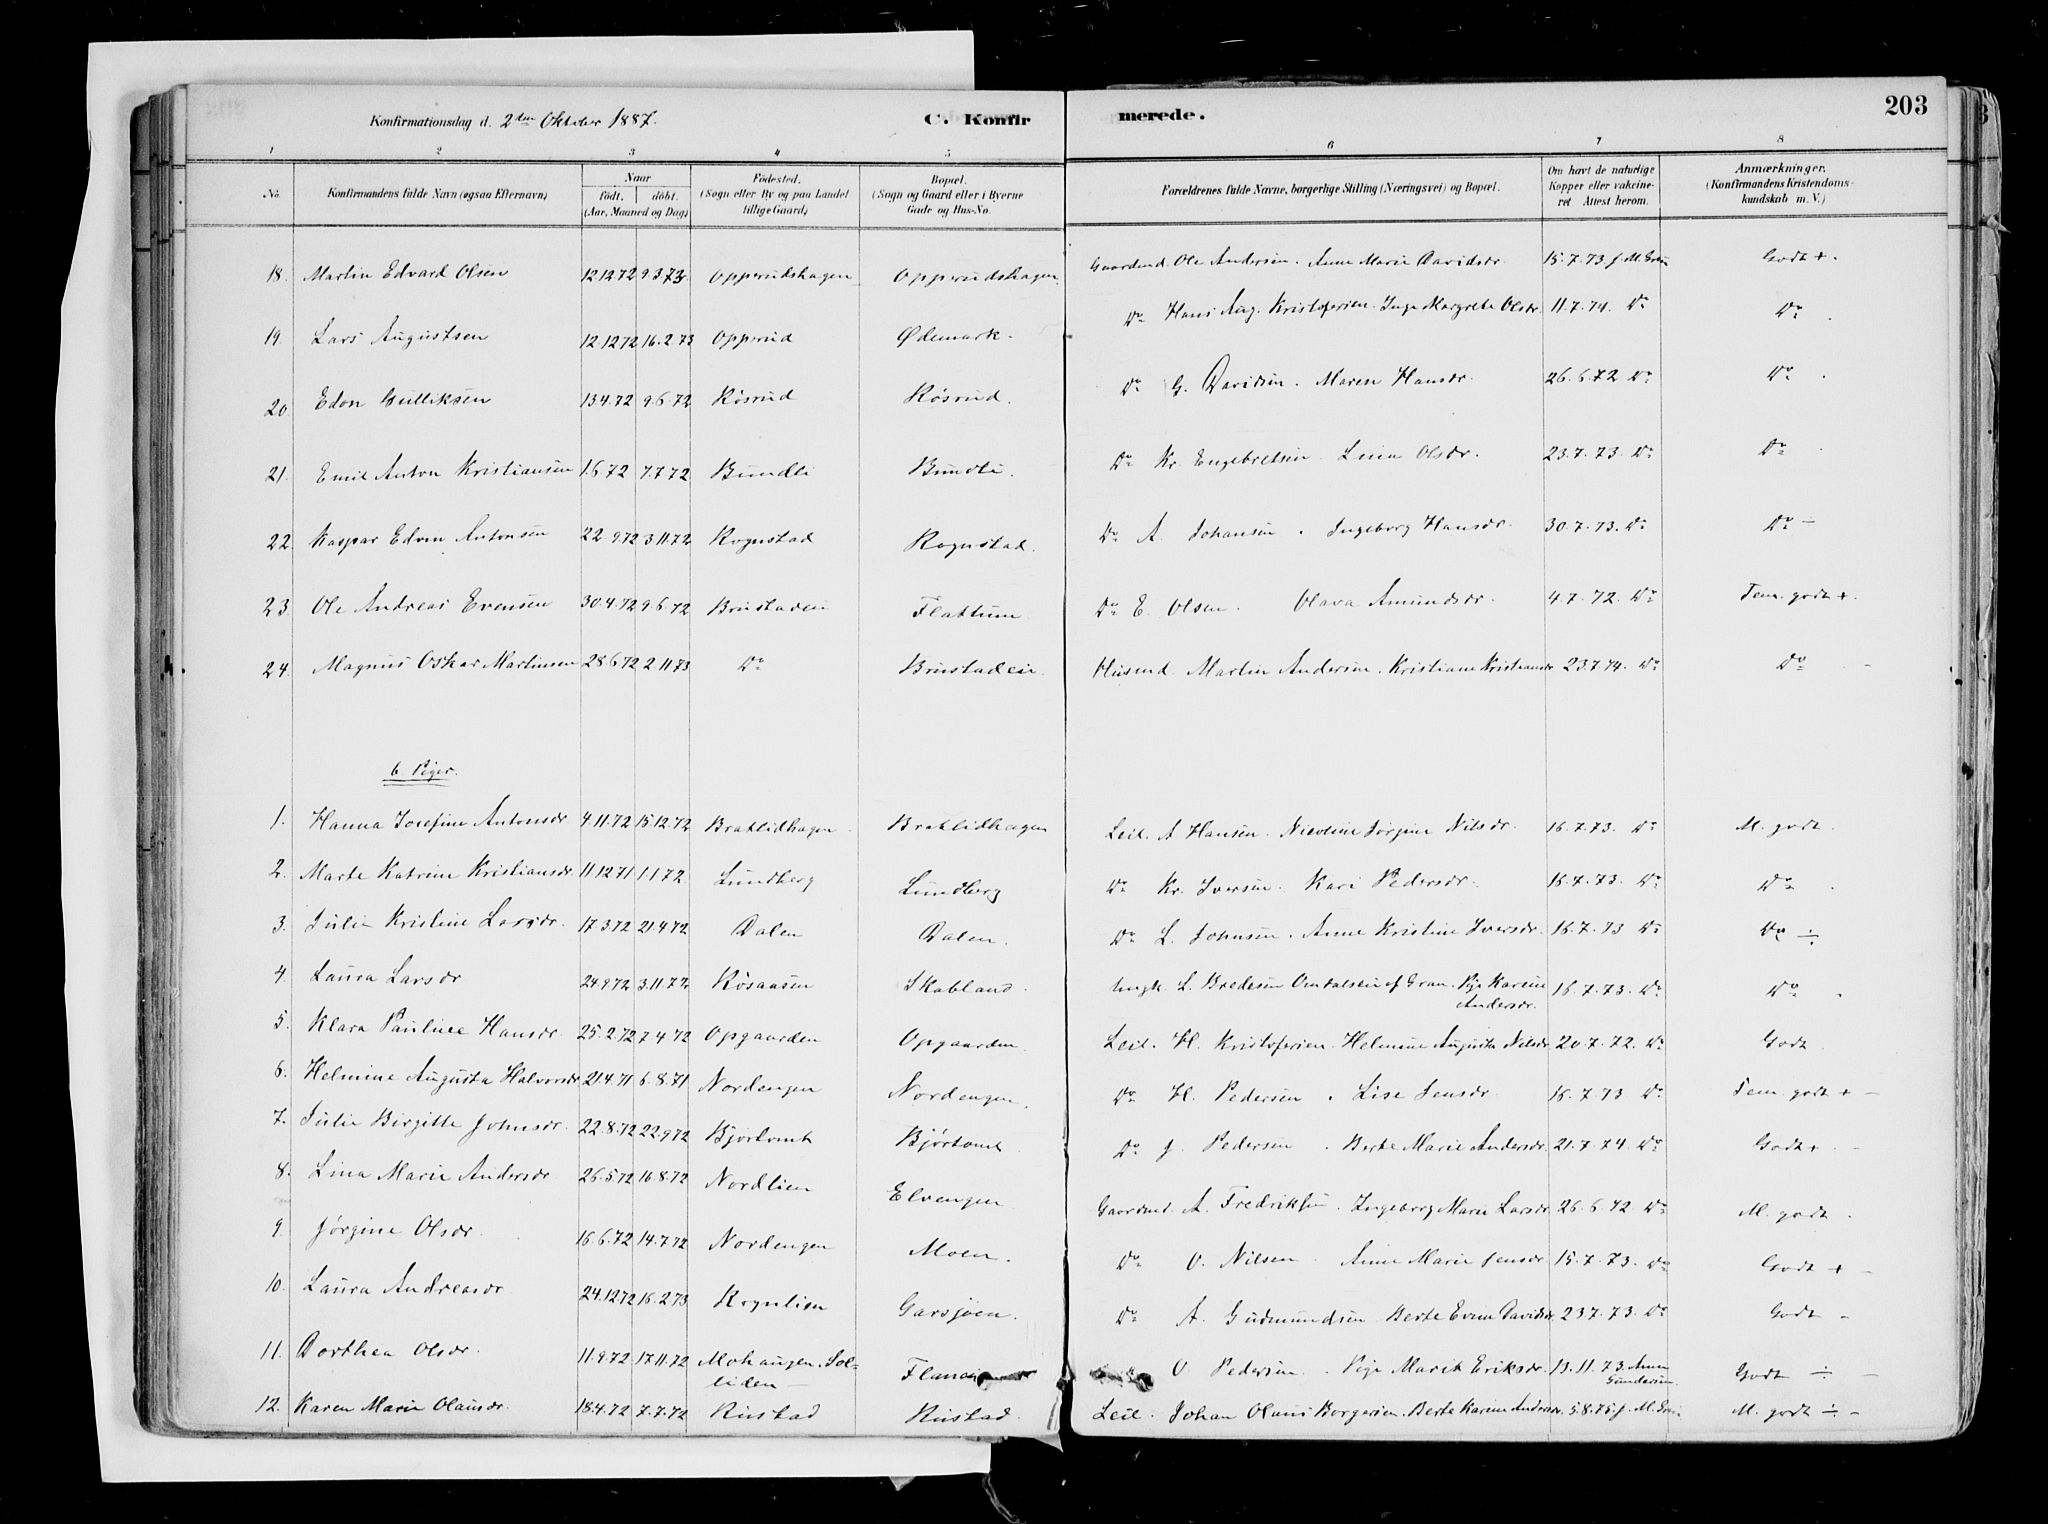 Konfirmationsdag d. 2den Oktober 1887. C. Konfirmerede. 203
1 2 3 4 5 6 7 8
No. Konfirmandens fulde Navn (ogsaa Efternavn) Naar født, døbt. (Aar, Maaned og Dag) Fødested. (Sogn eller By og paa Landet tillige Gaard) Bopæl. (Sogn og Gaard eller i Byerne Gade og Hus-No. Forældrenes fulde Navne, borgerlige Stilling (Næringsvei) og Bopæl. Om havt de naturlige Kopper eller vakcineret Attest herom. Anmærkninger. (Konfirmandens Kristendomskundskab m. V.)
18. Martin Edvard Olsen 12.12.72 9.3.73. Opperudshagen Opperudshagen. Gaardmd. Ole Andersen. Anne Marie Davidsdr. 15.7.73 J. M. Godt +.
19. Lars Augustsen 12.12.72 16.2.73 Opperud Ødemark. Do Hans Aug. Kristofersen. Inge Margrete Olsdr. 11.7.74. Do Do.
20. Edon Gulliksen 13.4.72 9.6.72 Røsrud Røsrud. Do G. Davidsen. Maren Hansdr. 26.6.72 Do Do.
21. Emil Anton Kristiansen 1.6.72 7.7.72 Bundli Bundli. Do Kr. Engebretsen. Lina Olsdr. 23.7.73. Do Do.
22. Kaspar Edvin Antonsen 22.9.72 3.11.72 Rognstad Rognstad. Do A. Johansen. Ingeborg Hansdr. 30.7.73. Do Do -
23. Ole Andreas Evensen 30.4.72 9.6.72 Brustadeie Flattum. Do E. Olsen. Olava Amundsdr. 4.7.72. Do Tem. godt +.
24. Magnus Oskar Martinsen 28.6.72 2.11.73 Do Brustadeie. Husmd. Martin Andersen. Kristiane Kristiansdr 23.7.74. Do Do -
b Piger.
1. Hanna Josefine Antonsdr 4.11.72 15.12.72 Bratlidhagen. Bratlidhagen Leil. A Hansen. Nicoline Jørgine Nilsdr. 16.7.73. Do M. godt.
2. Marte Katrine Kristiansdr. 11.12.71 1.1.72 Lundberg Lundberg Do Kr. Iversen. Kari Pedersdr. 16.7.73. Do Do.
3. Julie Kristine Larsdr. 17.3.72 21.4.72 Dalen Dalen. Do L. Johnsen. Anne Kristine Iversdr. 16.7.73 Do Do ÷
4. Laura Larsdr 24.9.72 3.11.72 Røsaasen Skabland. Ungk. L. Bredesen Omdalseie af Gran. Pige Karine Andersdr. 16.7.73. Do Do.
5. Klara Pauline Hansdr. 25.2.72 7.4.72 Opgaarden Opgaarden. Leil. H. Kristofersen. Helmine Augusta Nilsdr. 20.7.72. Do Godt
6. Helmine Augusta Halvorsdr 21.4.71 6.8.71 Nordengen Nordengen. Do H. Pedersen. Lise Jensdr. 16.7.73. Do Tem. godt + -
7. Julie Birgitte Johnsdr. 22.8.72 22.9.72 Bjørtomt Bjørtomt Do J. Pedersen. Berte Marie Andersdr. 21.7.74. Do Godt + -
8. Lina Marie Andersdr 26.5.72 16.8.72 Nordlien Elvengen Gaardmd. A. Fredriksen. Ingeborg Marie Larsdr. 26.6.72 Do M. godt.
9. Jørgine Olsdr. 16.6.72 14.7.72 Nordengen Moen. Do O. Nilsen. Anne Marie Jensdr 15.7.73. Do Godt + -
10. Laura Andreasdr 24.12.72 16.2.73 Rognlien Garsjøen. Do A. Gudmundsen. Berte Davidsdr. 23.7.73. Do Godt -
11. Dorthea Olsdr. 11.9.72 17.11.72 Mohaugen. Solliden - O Pedersen. Pige Marit Eriksdr. 13.11.73. Gundersen. Godt ÷ -
12. Karen Marie Olausdr. 18.4.72 7.7.72 Rustad Rustad. Leil. Johan Olaus Borgersen. Berte Karine Andersdr. 5.8.75 J. M. M. godt ÷ -